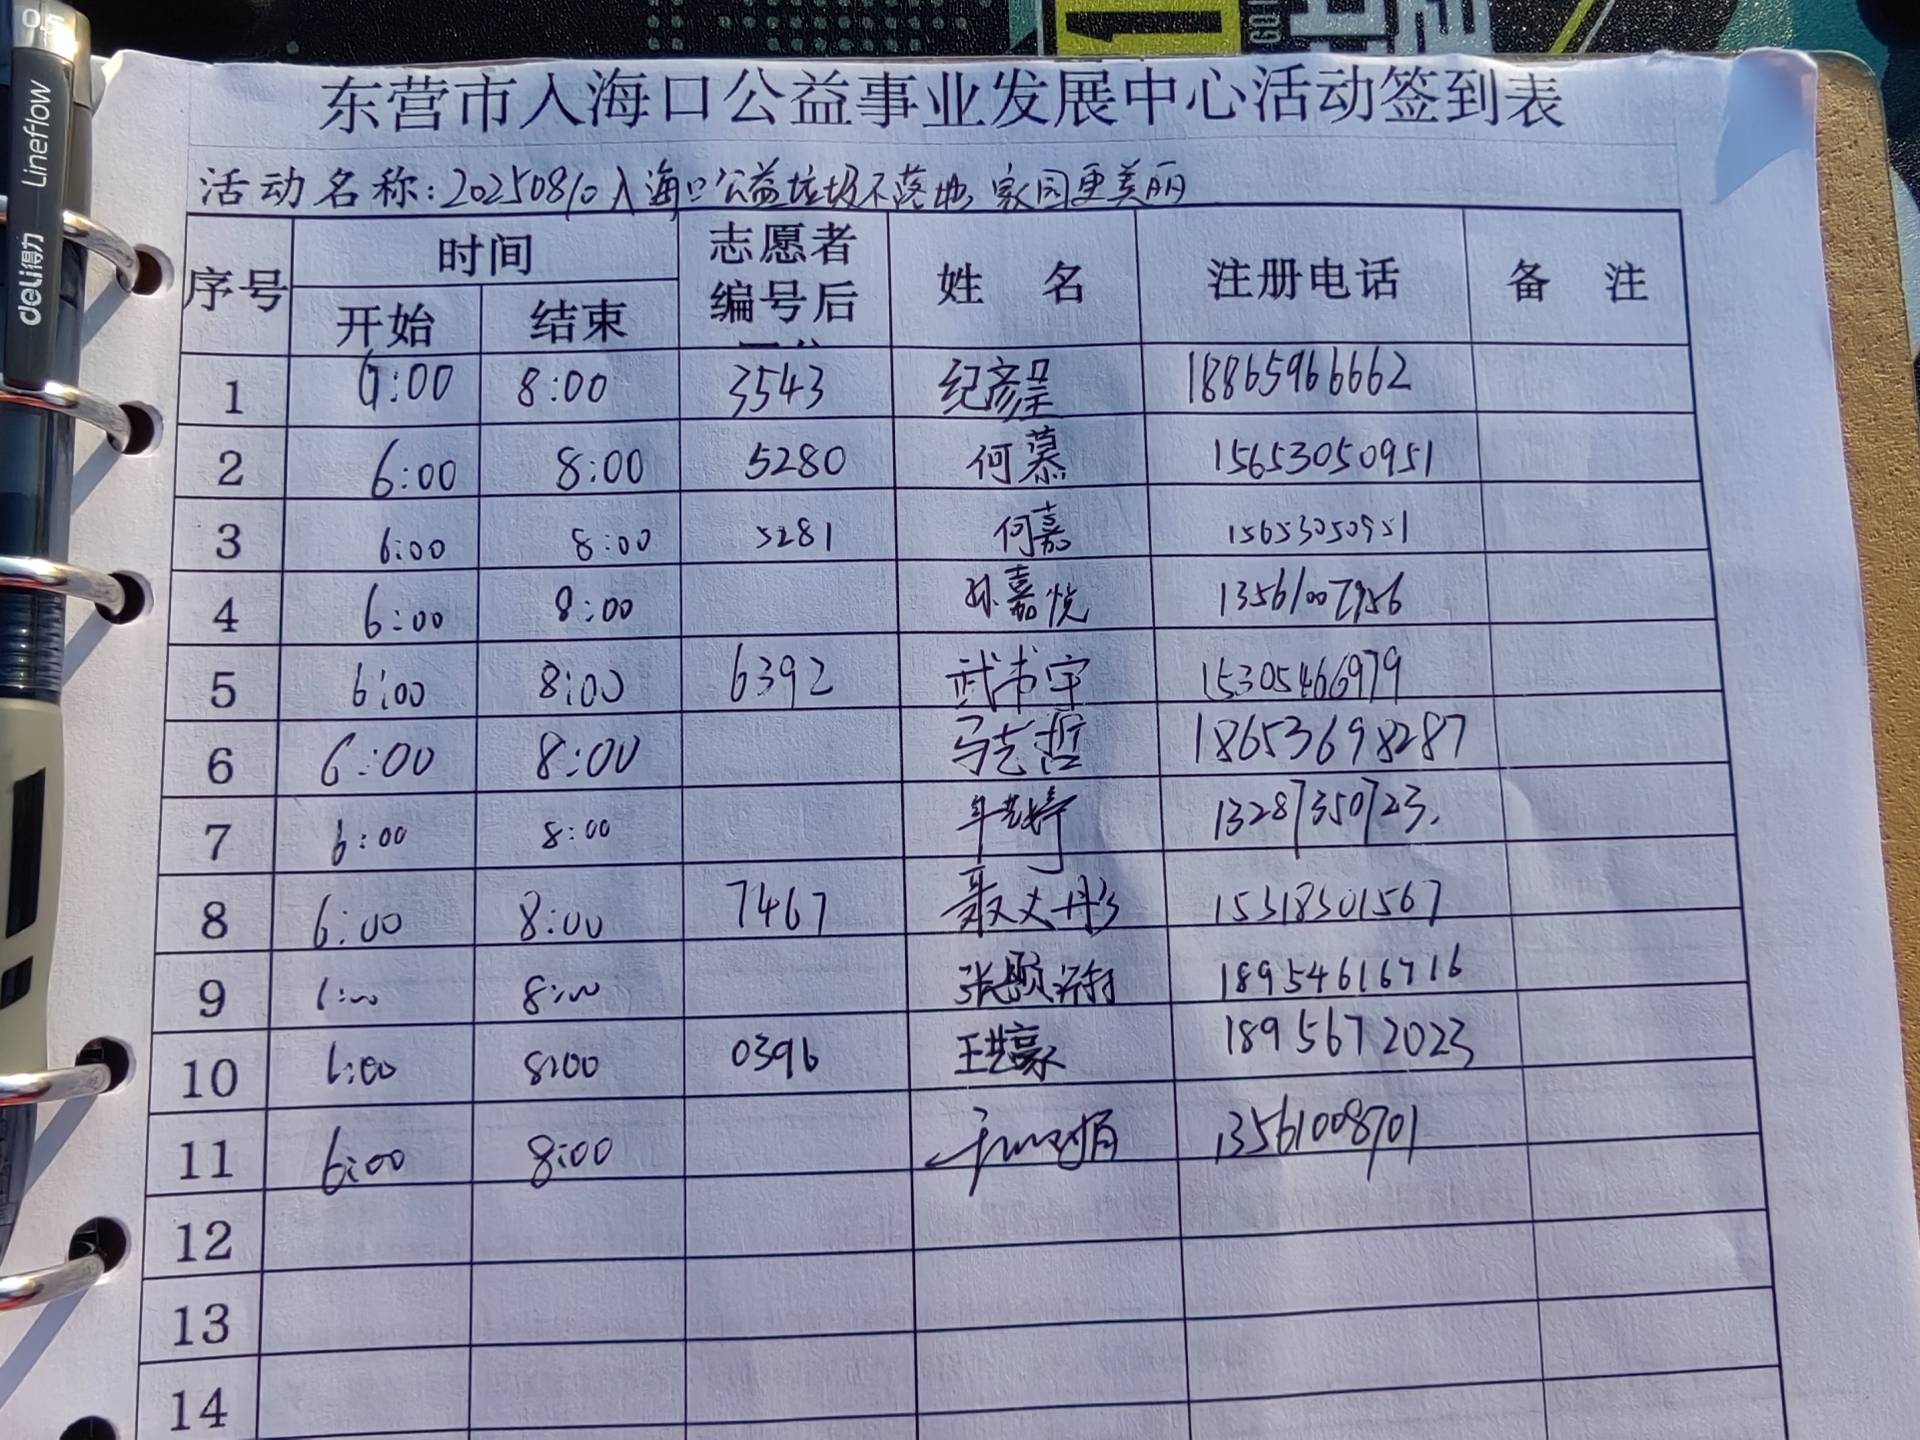 0.5
Lineflow
deli得力
东营市入海口公益事业发展中心活动签到表
活动名称:20250810入海口公益垃圾不落地 家园更美丽
序号 时间 开始 结束 志愿者编号后 姓 名 注册电话 备 注
1 6:00 8:00 3543 纪彦呈 18865966662
2 6:00 8:00 5280 何慕 15653050951
3 6:00 8:00 5281 何嘉 15653050951
4 6:00 8:00 孙嘉悦 13561007956
5 6:00 8:00 6392 武书宇 15305466979
6 6:00 8:00 马艺哲 18653698287
7 6:00 8:00 13287350723.
8 6:00 8:00 7467 聂文彤 15318301567
9 6:00 8:00 张 18954616716
10 6:00 8:00 0396 王艺豪 1895672023
11 6:00 8:00 13561008701
12
13
14